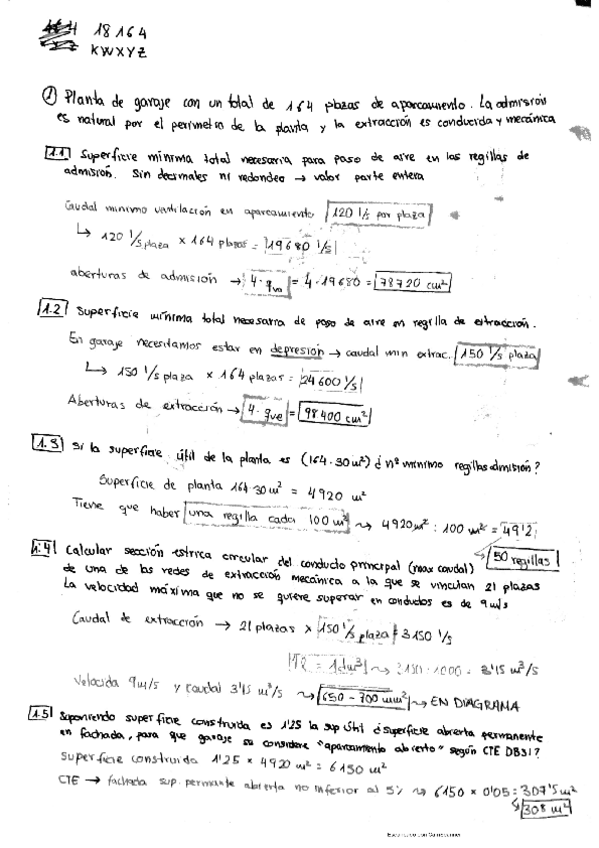 18164
KWXYZ
① Planta de garaje con un total de 164 plazas de aparcamiento. La admisión
es natural por el perímetro de la planta y la extracción es conducida y mecánica
1.1 Superficie mínima total necesaria para paso de aire en las regillas de
admisión. Sin decimales ni redondeo → valor parte entera
Caudal minimo ventilación en aparcamiento 120 l/s por plaza
↳ 120 l/s plaza × 164 plazas = 19680 l/s
aberturas de admisión → 4·qva = 4·19680 = 78720 cm²
1.2 Superficie mínima total necesaria de paso de aire en regilla de extracción.
En garaje necesitamos estar en depresión → caudal min extrac. 150 l/s plaza
↳ 150 l/s plaza × 164 plazas = 24600 l/s
Aberturas de extracción → 4·qve = 98400 cm²
1.3 Si la superficie útil de la planta es (164·30m²) ¿nº mínimo regillas admisión?
Superficie de planta 164·30m² = 4920 m²
Tiene que haber una regilla cada 100 m² ⇝ 4920m² : 100 m² = 49'2
50 regillas
1.4 Calcular sección estricta circular del conducto principal (max caudal)
de una de las redes de extracción mecánica a la que se vinculan 21 plazas
La velocidad máxima que no se quiere superar en conductos es de 9 m/s
Caudal de extracción → 21 plazas × 150 l/s plaza = 3150 l/s
1l = 1dm³ ⇝ 3150:1000 = 3'15 m³/s
Velocida 9m/s y caudal 3'15 m³/s ⇝ 650-700 mm² ⇝ EN DIAGRAMA
1.5 Suponiendo superficie construida es 1'25 la sup útil ¿superficie abierta permanente
en fachada, para que garaje se considere "aparcamiento abierto" según CTE DBSI?
Superficie construida 1'25 × 4920 m² = 6150 m²
CTE → fachada sup. permante abierta no inferior al 5% ⇝ 6150 × 0'05 = 307'5 m²
308 m²
Escaneado con CamScanner